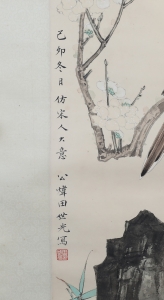 己卯冬日仿宋人大意 公煒田世光寫